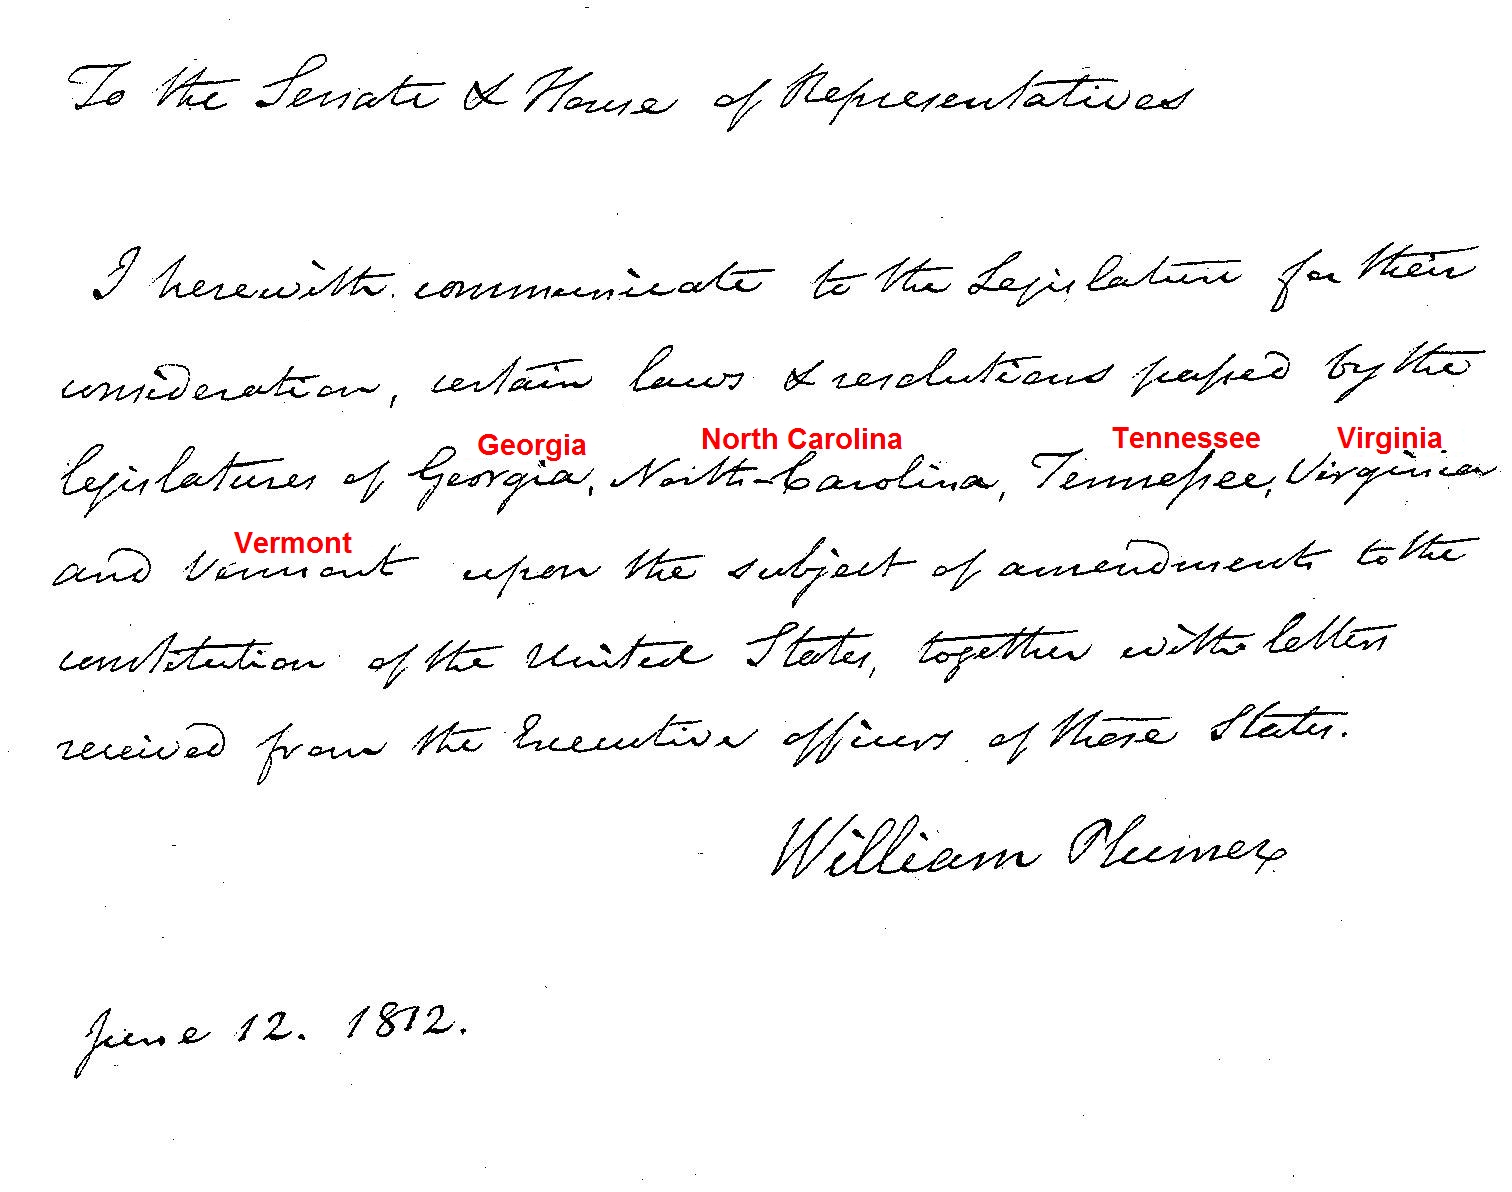 To the Senate & House of Representatives
I herewith communicate to the Legislature for their
consideration, certain laws & resolutions passed by the
Georgia North Carolina Tennessee Virginia
legislatures of Georgia, North-Carolina, Tennessee, Virginia
Vermont
and Vermont upon the subject of amendments to the
constitution of the United States, together with letters
received from the Executive officers of those States.
William Plumer
June 12. 1812.